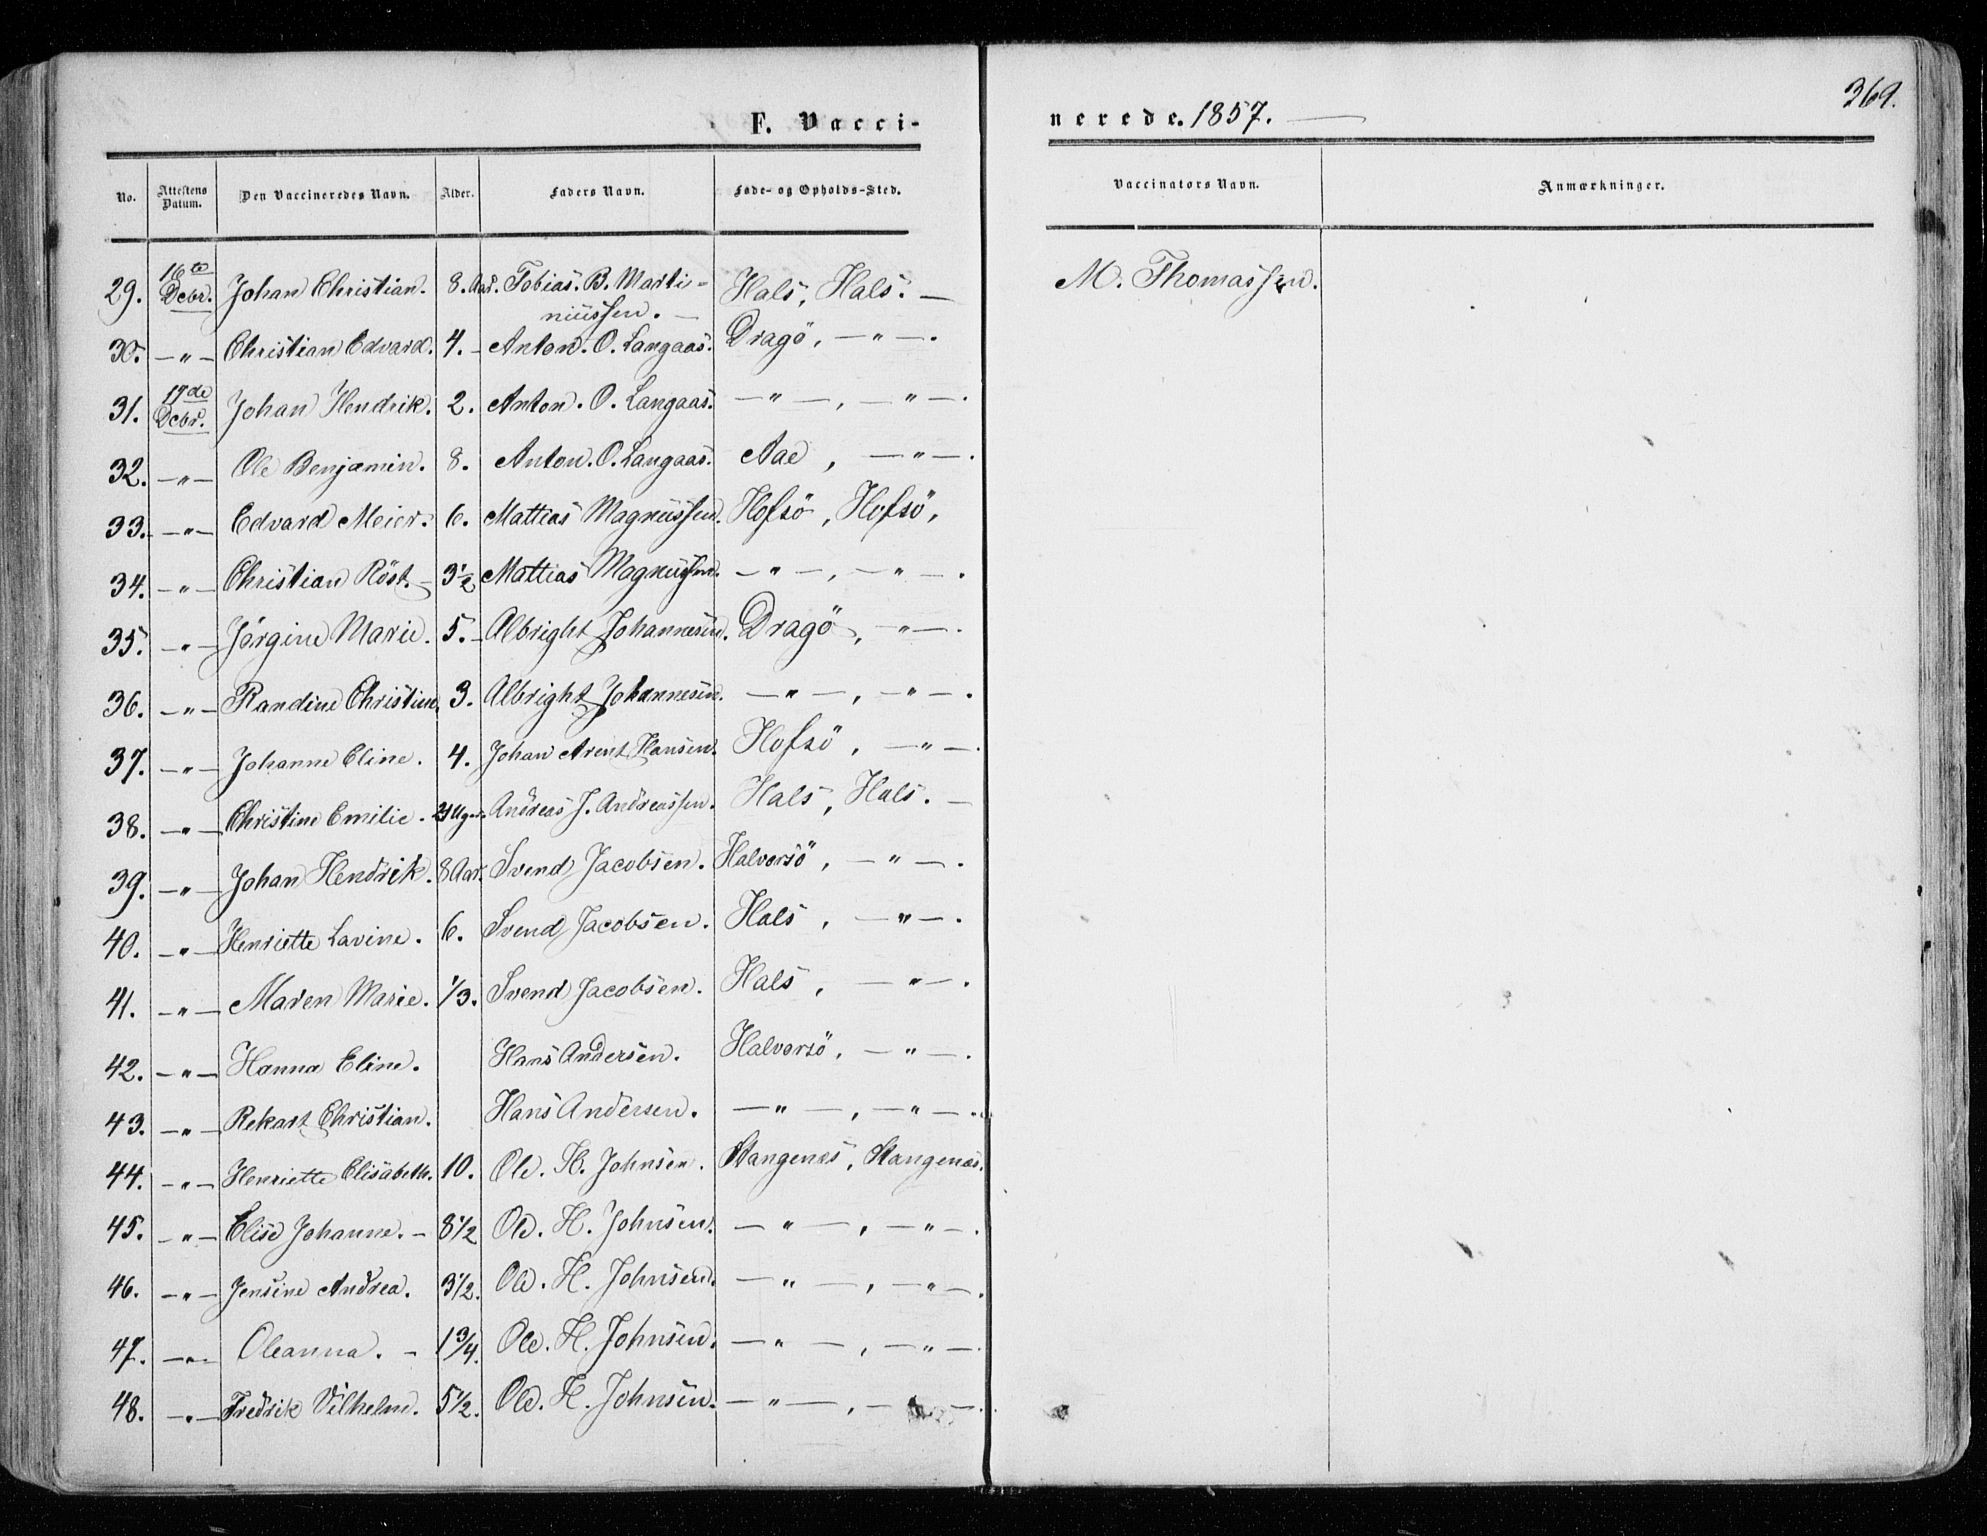 369.
F. Vacci- nerede. 1857. —
No. Attestens Datum. Den Vaccineredes Navn. Alder. Faders Navn. Føde- og Opholds-Sted. Vaccinators Navn. Anmærkninger.
29. 16te Debr. Johan Christian. 8. Aar. Tobias. B. Marti- Hals, Hals. — M. Thomassen.
niussen. —
30. —"— Christian Edvard. 4. - Anton. O. Langaas. Dragö, —"—.
31. 17de Debr. Johan Hendrik. 2. Anton. O. Langaas. —"—, —"—.
32. —"— Ole Benjamin. 8. Anton. O. Langaas. Aae, —"—.
33. —"— Edvard Meier. 6. Mattias Magnussen. Hofsö, Hofsö,
34. —"— Christian Röst. - 3½ Mattias Magnussen. —"—, —"—.
35. —"— Jörgine Marie. 5. - Albright Johannesen. Dragö, —"—.
36. —"— Randine Christine. 3. Albright Johannesen. —"—, —"—.
37. —"— Johanne Eline. 4. Johan Arent Hansen. Hofsö, —"—.
38. —"— Christine Emilie. Uger. Andreas J. Andreassen. Hals, Hals. —
39. —"— Johan Hendrik. 8 Aar. Svend Jacobsen. Halvorsö, —"—.
40. —"— Henriette Lavine. 6. Svend Jacobsen. Hals, —"—.
41. —"— Maren Marie. 1/3. Svend Jacobsen. Hals, —"—.
42. —"— Hanna Eline. Hans Andersen. Halvorsö, —"—.
43. —"— Rekart Christian. Hans Andersen. —"—, —"—.
44. —"— Henriette Elisabeth. 10. Ole. H. Johnsen. Stangenæs, Stangenæs.
45. —"— Elise Johanne. - 8½ Ole. H. Johnsen. —"—, —"—.
46. —"— Jensine Andrea. 3½. Ole. H. Johnsen. —"—, —"—.
47. —"— Oleanna. - 1¾. Ole. H. Johnsen. —"—, —"—
48. —"— Fredrik Vilhelm. 5½. Ole. H. Johnsen. —"—, —"—.